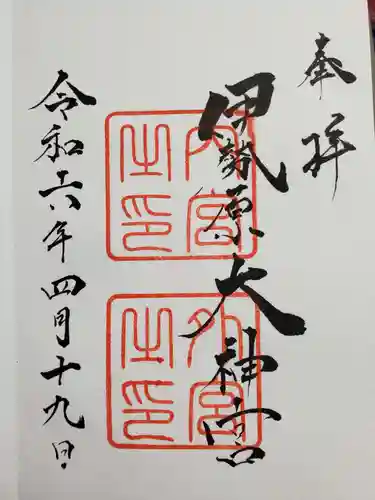 奉拝
伊勢原大神宮
内宮之印
外宮之印
令和六年四月十九日